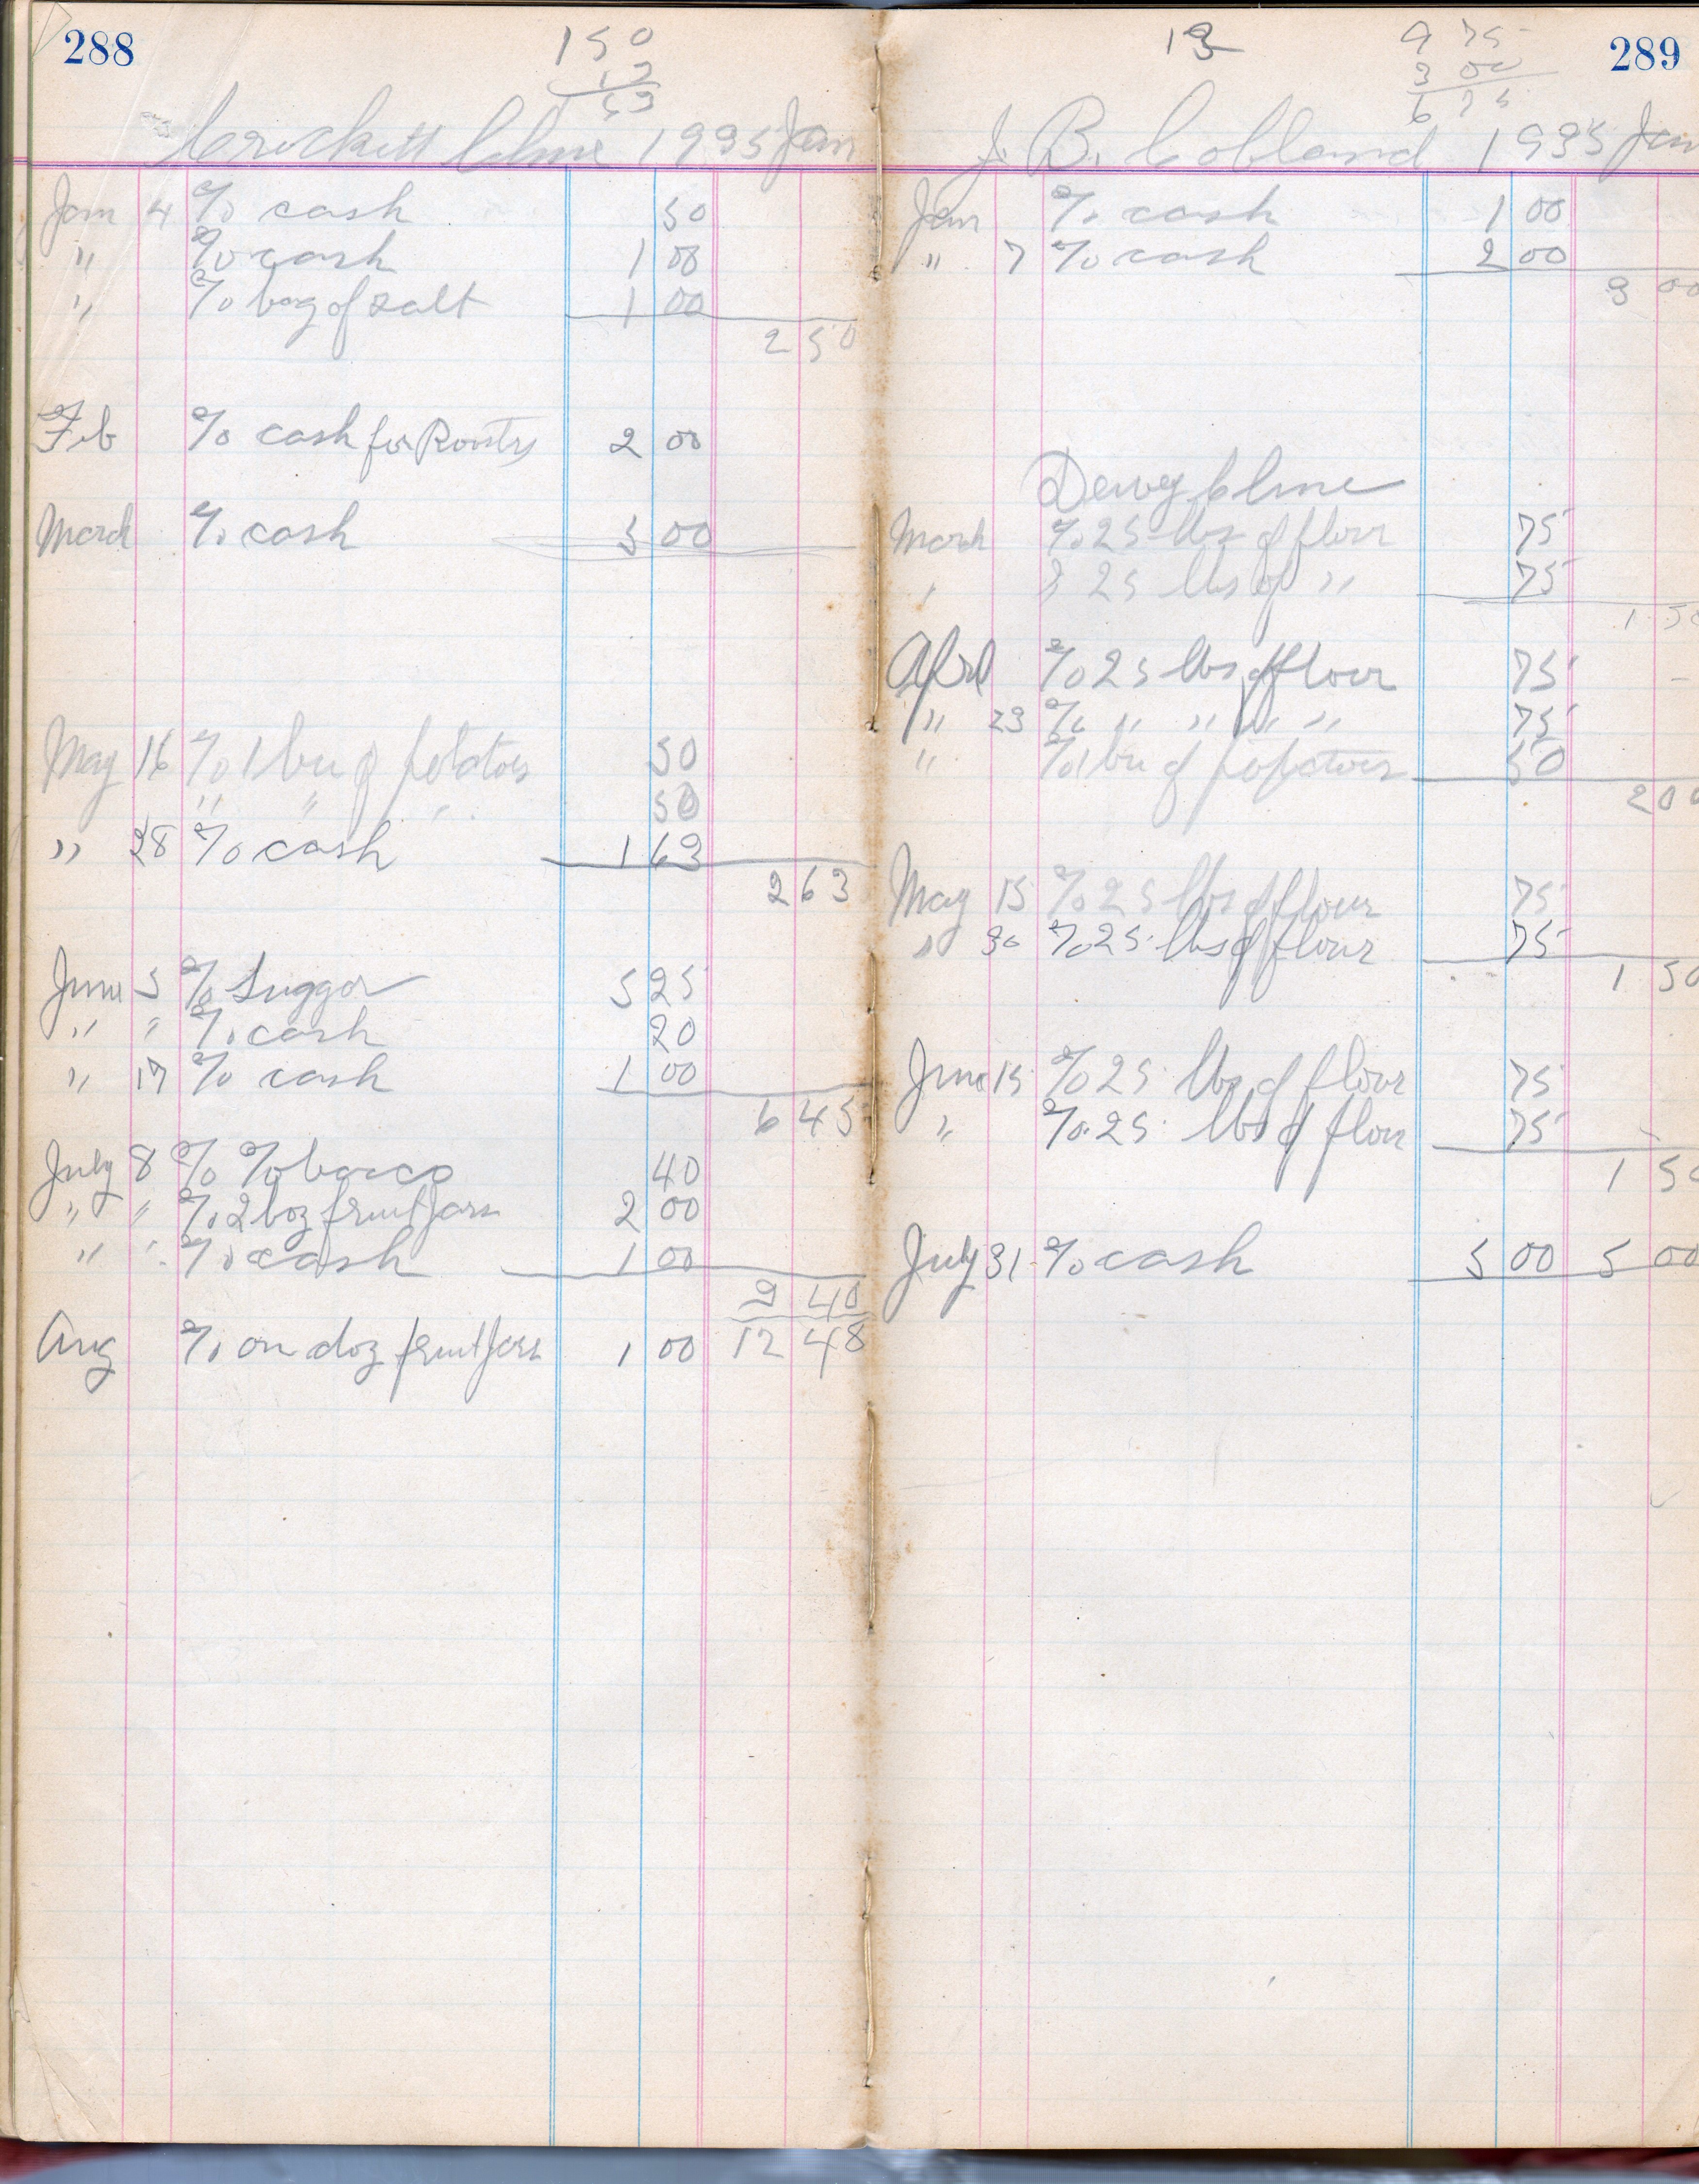 288
150
12
63
Crockett Cline 1935 Jan
Jan 4 % cash 50
" % cash 1 00
" % bag of salt 1 00
2 50
Feb % cash for Roosters 2 00
March % cash 5 00
May 16 % 1 bu of potatoes 50
" " " 50
" 28 % cash 1 63
2 63
June 5 % Suggar 5 25
" " % cash 20
" 17 % cash 1 00
6 45
July 8 % Tobacco 40
" " % 2 boz fruit Jars 2 00
" " % cash 1 00
3 40
12 48
Aug % on doz fruit Jars 1 00
13
9 75
3 00
6 75
289
J. B. Colland 1935 Jan
Jan % cash 1 00
" 7 % cash 2 00
3 00
Dewey Cline
March % 25 lbs of flour 75
" % 25 lbs of " 75
1 50
Aprl % 25 lbs of flour 75
" 23 % " " " " 75
" % 1 bu of potatoes 50
2 00
May 15 % 25 lbs of flour 75
" 30 % 25 lbs of flour 75
1 50
June 15 % 25 lbs of flour 75
" % 25 lbs of flour 75
1 50
July 31 % cash 5 00 5 00